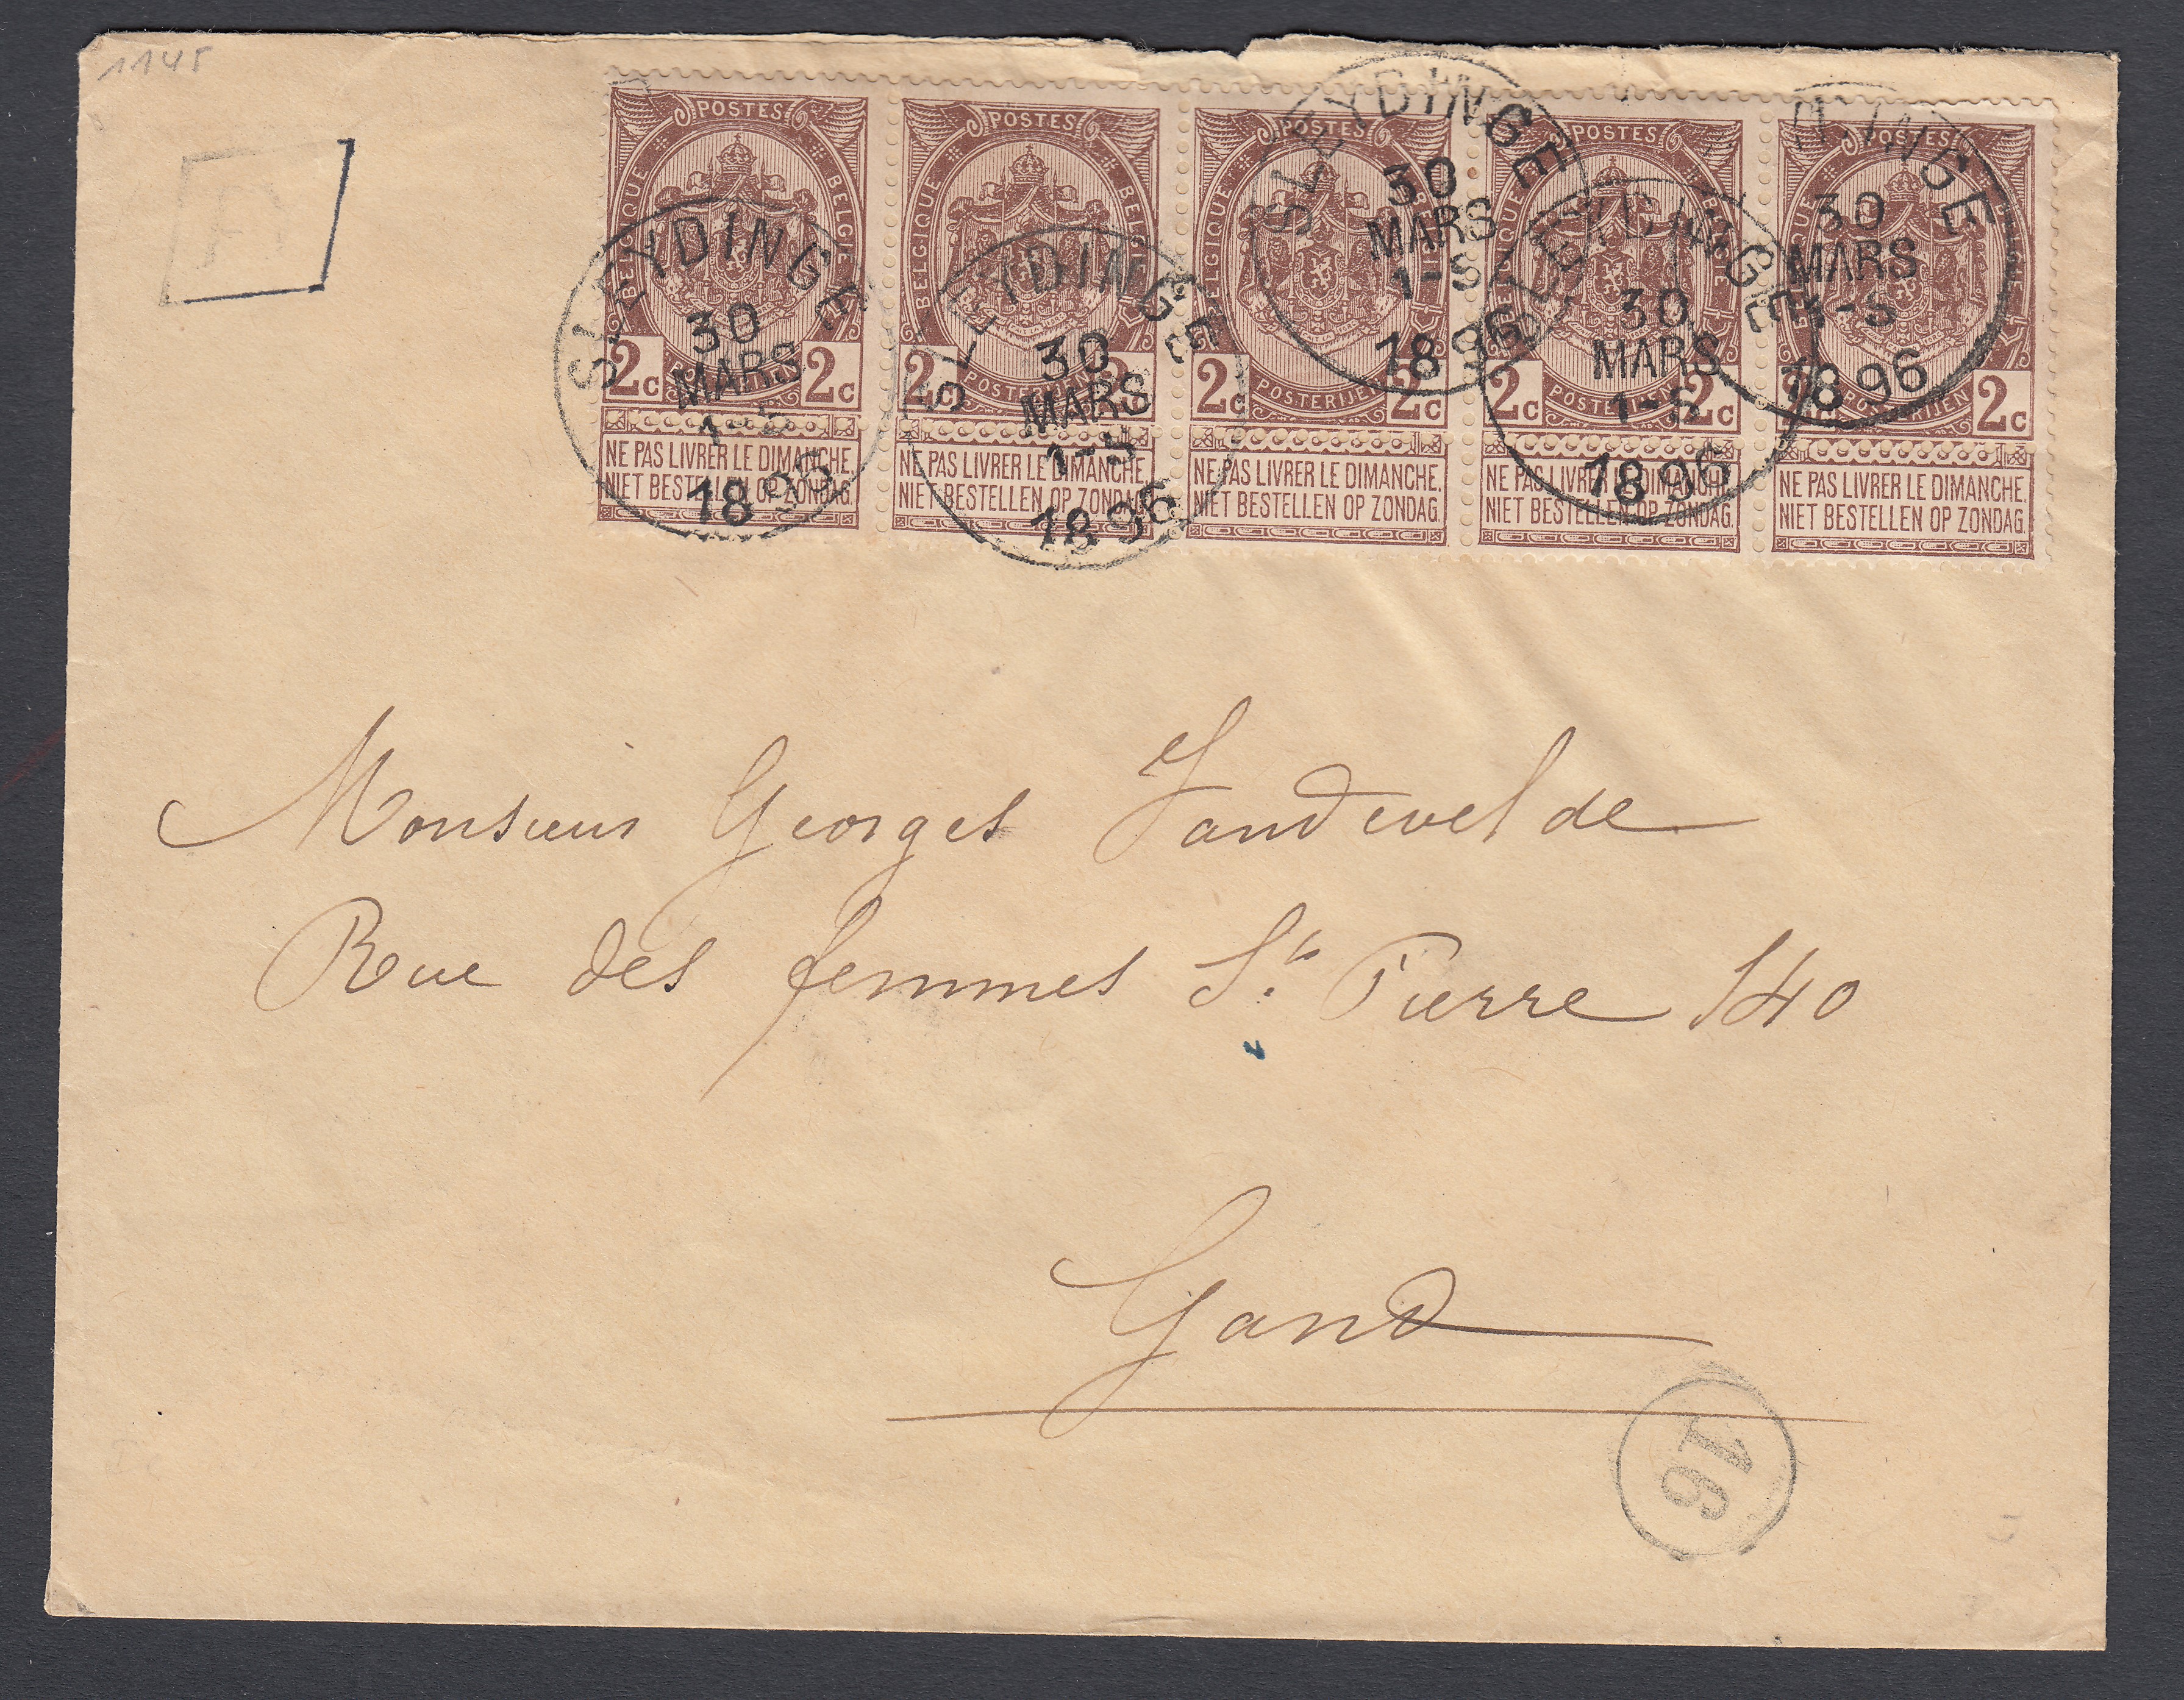 1145
POSTES POSTES POSTES POSTES POSTES
BELGIQUE BELGIE BELGIQUE BELGIE BELGIQUE BELGIE BELGIQUE BELGIE
SLEYDINGE SLEYDINGE SLEYDINGE SLEYDINGE
30 30 30 30 30
MARS MARS MARS MARS MARS
1-S 1-S 1-S 1-S
1896 1896 1896 1896 1896
2c 2c 2c 2c 2c 2c 2c 2c 2c
POSTERIJEN POSTERIJEN POSTERIJEN POSTERIJEN POSTERIJEN
NE PAS LIVRER LE DIMANCHE. NE PAS LIVRER LE DIMANCHE. NE PAS LIVRER LE DIMANCHE. NE PAS LIVRER LE DIMANCHE. NE PAS LIVRER LE DIMANCHE.
NIET BESTELLEN OP ZONDAG. NIET BESTELLEN OP ZONDAG. NIET BESTELLEN OP ZONDAG. NIET BESTELLEN OP ZONDAG. NIET BESTELLEN OP ZONDAG.
Monsieur Georges Vandevelde
Rue des femmes St. Pierre 140
Gand
16